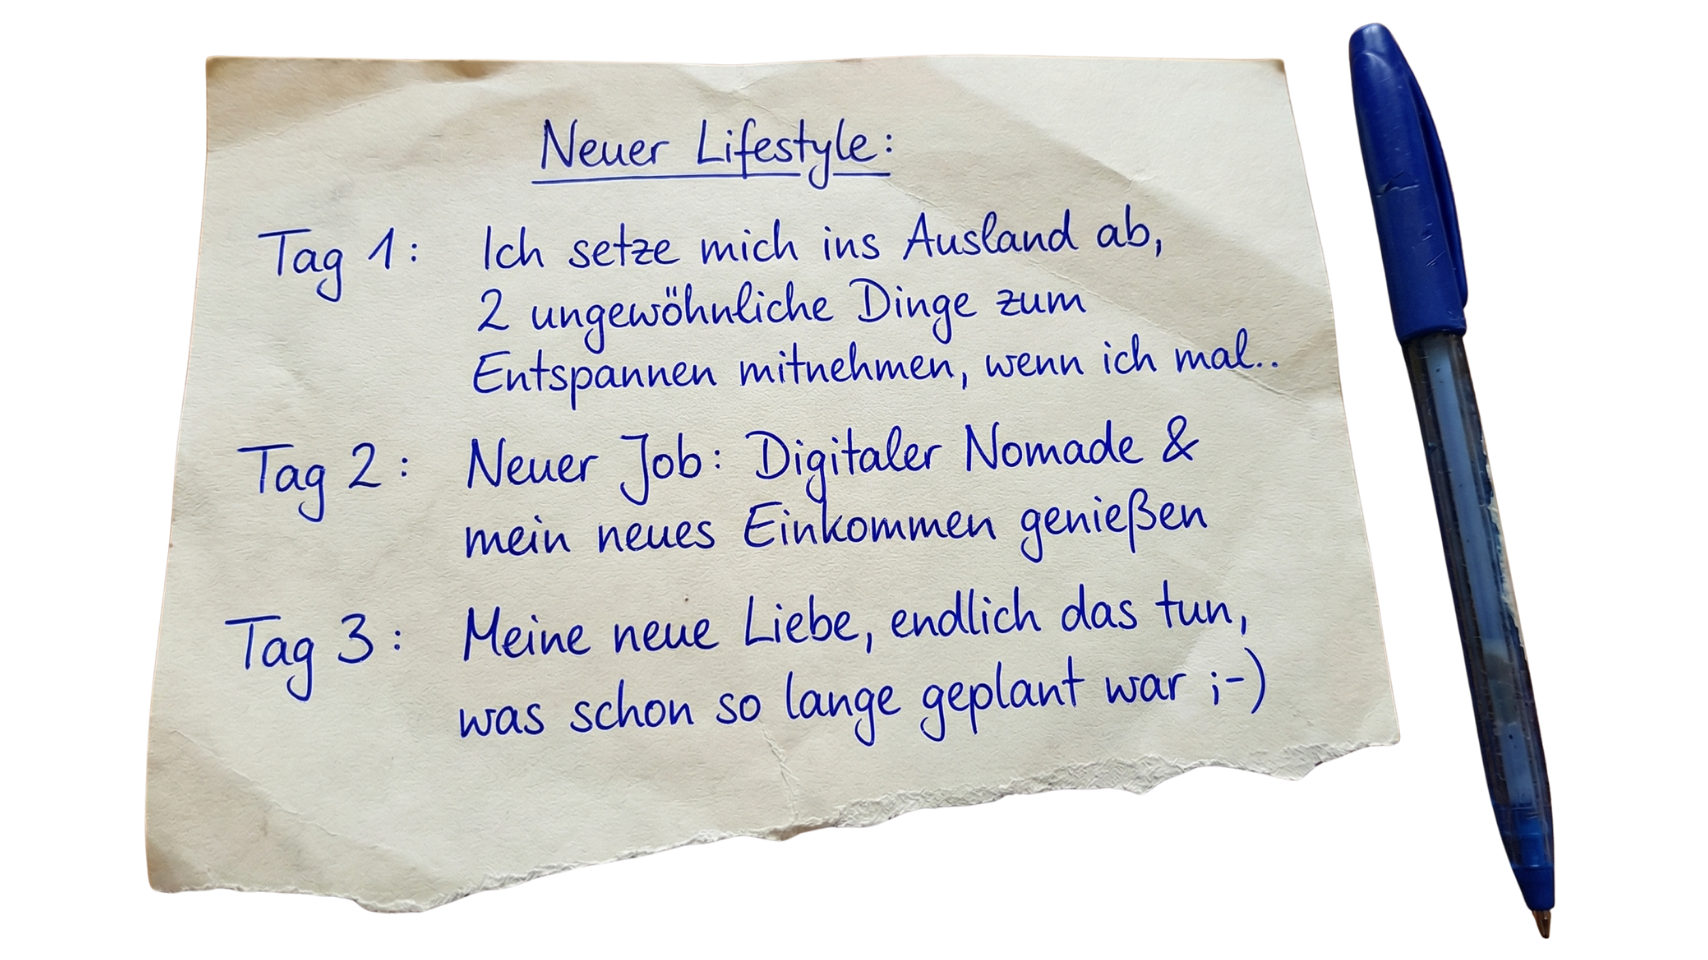 Neuer Lifestyle:
Tag 1: Ich setze mich ins Ausland ab,
2 ungewöhnliche Dinge zum
Entspannen mitnehmen, wenn ich mal..
Tag 2: Neuer Job: Digitaler Nomade &
mein neues Einkommen genießen
Tag 3: Meine neue Liebe, endlich das tun,
was schon so lange geplant war ;-)